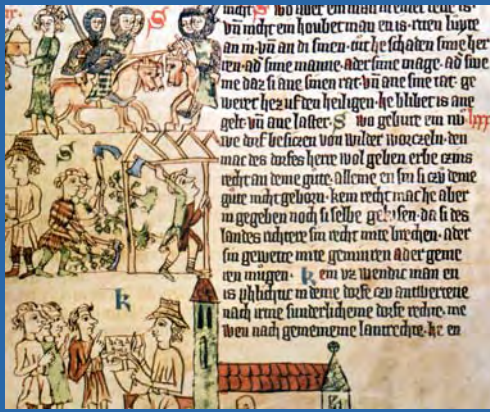 nicht · S wo aber ein man in einer
vn̄ nicht ein houbet man en is · iren
an in vn̄ an di sinen · our he schaden sime her
ren · ad sime manne · ader sime mage · ad swe
me daz si ane sinen rat · vn̄ ane sine tat · ge
weret her uf den heiligen · he blibet is ane
gelt · vn̄ ane laster · S wo gebure ein nu lxxx
we dorf besiczen von wilder worczeln · den
mac des dorfes herre wol geben erbe czins
recht an deme gute · alleine en sin si czu deme
gute nicht geborn · kein recht mac he aber
in gegeben noch si selbe · da si des
landes richtere sin recht mite brechen · ader
sin gewette mite ader geme
ren mugen · k ein vz wendic man en
is phlichtic in deme dorfe czu antwertene
nach irme sunderlicheme dorfe rechte · me
wen nach gemeineme lantrechte · he en
S
k